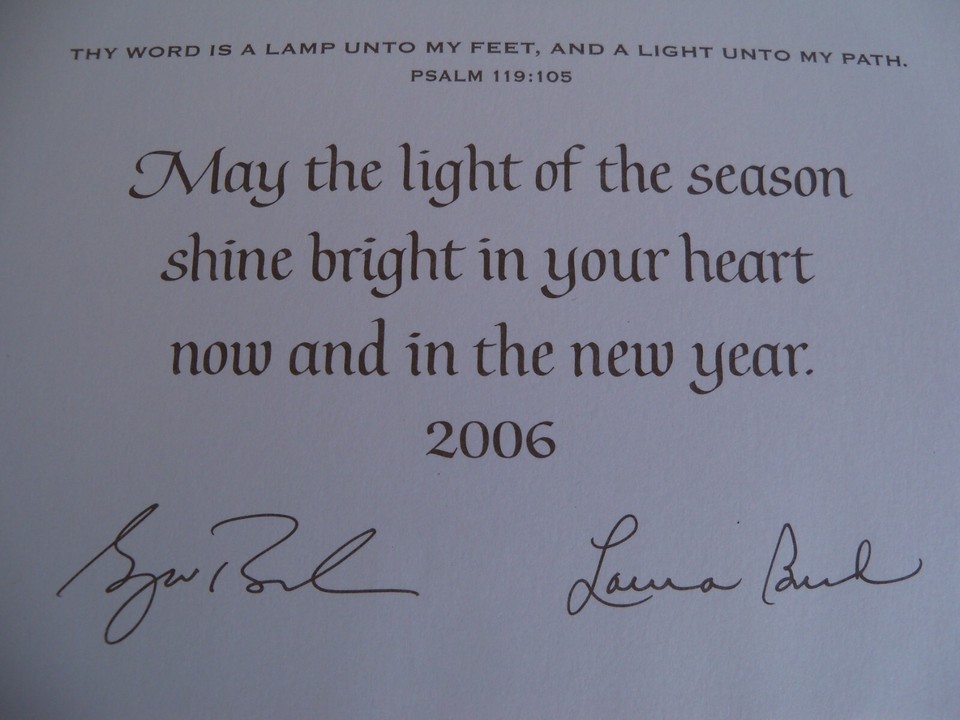 THY WORD IS A LAMP UNTO MY FEET, AND A LIGHT UNTO MY PATH.
PSALM 119:105
May the light of the season
shine bright in your heart
now and in the new year.
2006
George Bush Laura Bush